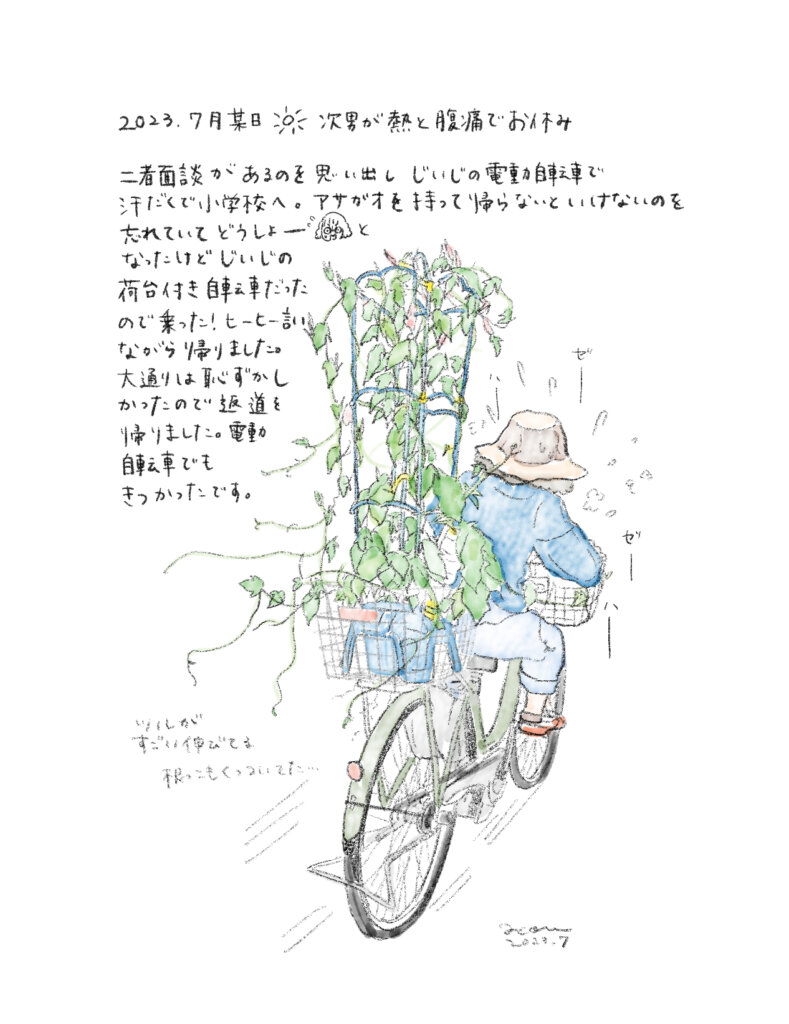 2023.7月某日 次男が熱と腹痛でお休み
二者面談があるのを思い出しじいじの電動自転車で
汗だくで小学校へ。アサガオを持って帰らないといけないのを
忘れていてどうしよーと
なったけどじいじの
荷台付き自転車だった
ので乗った!ヒーヒー言い
ながら帰りました。
大通りは恥ずかし
かったので裏道を
帰りました。電動
自転車でも
きつかったです。
ゼー
ハー
ゼー
ハー
ツルが
すごい伸びてる
根っこもくっついてた…
2023.7